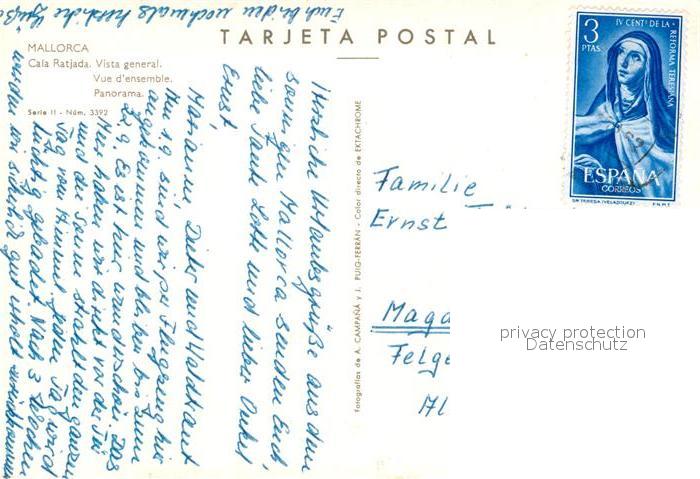 TARJETA POSTAL
MALLORCA
Cala Ratjada. Vista general.
Vue d'ensemble.
Panorama.
Serie II - Núm. 3392
Herzliche Urlaubsgrüße aus dem
sonnigen Mallorca senden Euch,
liebe Tante Lotte und lieber Onkel
Ernst,
Marianne, Dieter und Waltraut
Am 1.9. sind wir per Flugzeug hier
angekommen und bleiben bis zum
Es ist hier wunderschön. Das
Meer haben wir direkt vor der Tür
und die Sonne strahlt den ganzen
Tag vom Himmel. Jeden Tag wird
tüchtig gebadet. Nach 3 Wochen
werden wir gut erholt zurückkommen
Euch beiden nochmals herzliche Grüße
Fotografías de A. CAMPAÑÁ y J. PUIG-FERRÁN - Color directo de EKTACHROME
Familie
Ernst
Magd
Felge
Al
3
PTAS
IV CENT. DE LA
REFORMA TERESIANA
ESPAÑA
CORREOS
STA TERESA (VELAZQUEZ)
F.N.M.T.
privacy protection
Datenschutz